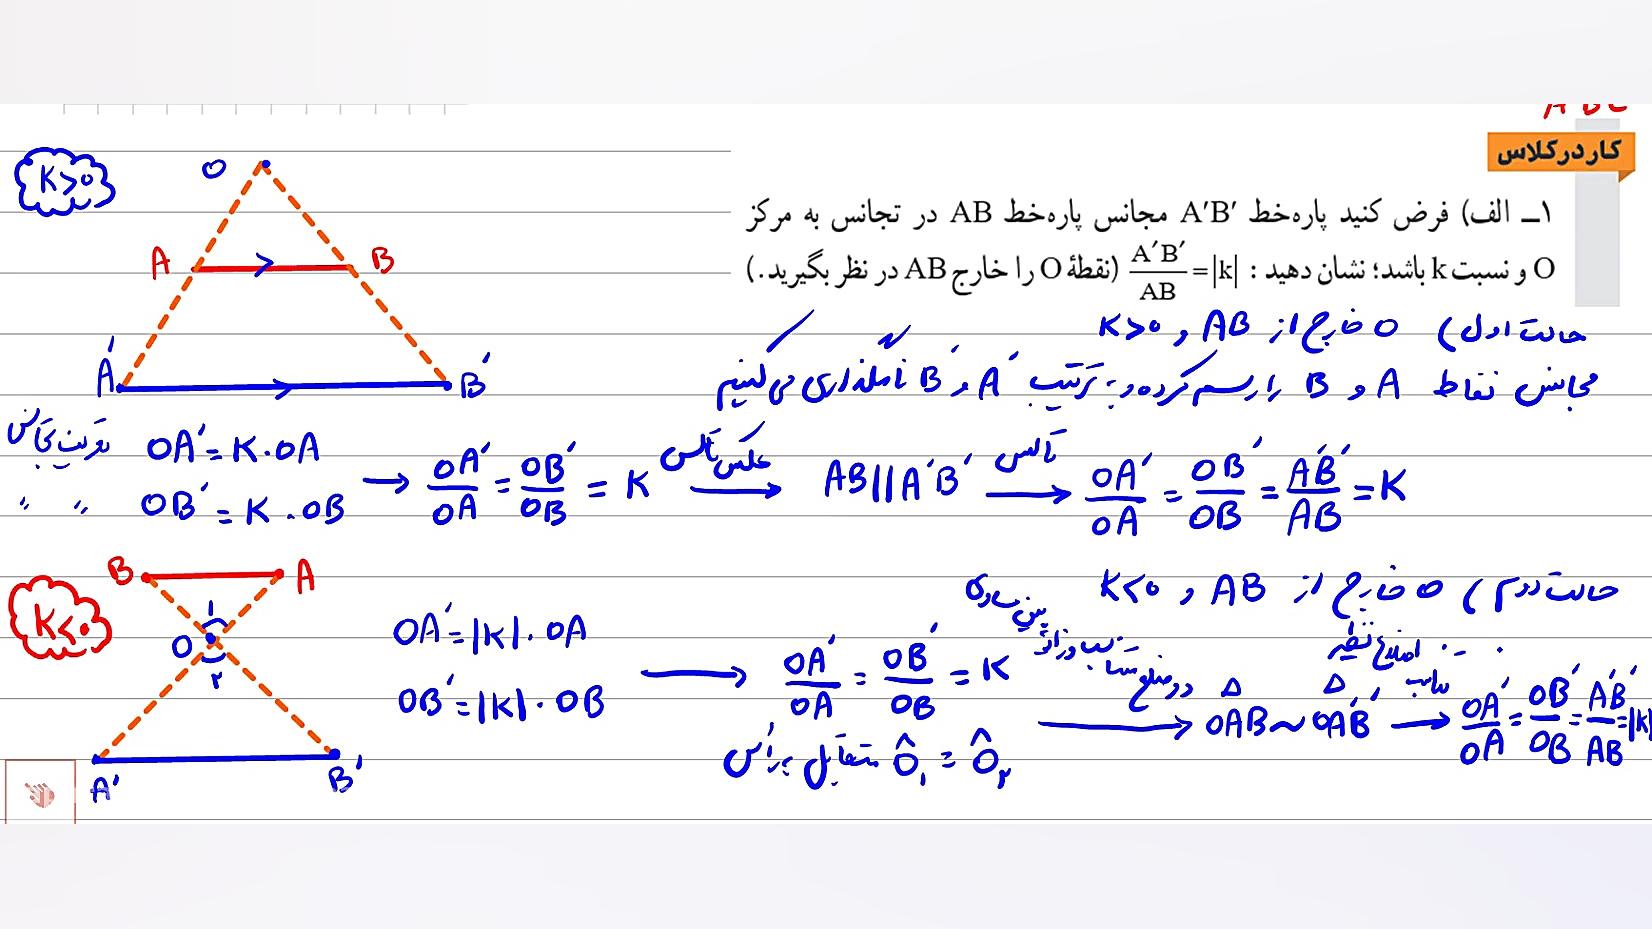 A B C
کار در کلاس
۱ــ الف) فرض کنید پاره‌خط A′B′ مجانس پاره‌خط AB در تجانس به مرکز
O و نسبت k باشد؛ نشان دهید : A′B′/AB = |k| (نقطهٔ O را خارج AB در نظر بگیرید.)
K>0
O
A B
A′ B′
حالت اول) O خارج از AB و K>0
مجانس نقاط A و B را رسم کرده و به ترتیب A′ و B′ نامگذاری می کنیم
تعریف تجانس OA′ = K.OA
" " OB′ = K.OB
→ OA′/OA = OB′/OB = K عکس تالس → AB||A′B′ تالس → OA′/OA = OB′/OB = A′B′/AB = K
K<0
B A
۱
O
۲
A′ B′
حالت دوم) O خارج از AB و K<0
OA′ = |K|.OA
OB′ = |K|.OB
→ OA′/OA = OB′/OB = K
Ô₁ = Ô₂ متقابل به رأس
دو ضلع متناسب و زاویه بین مساوی → OAB ~ OA′B′ تناسب اضلاع نظیر → OA′/OA = OB′/OB = A′B′/AB = |K|